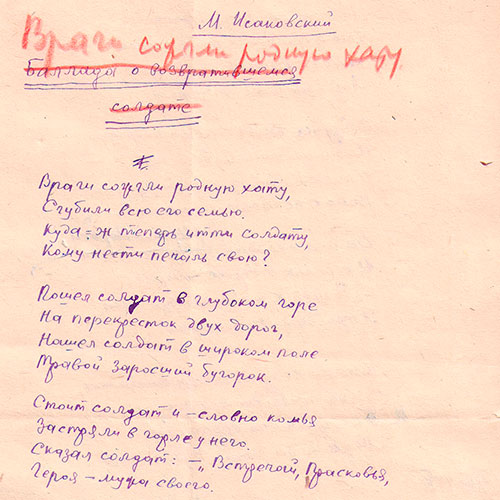 М. Исаковский
Враги сожгли родную хату
Баллада о возвратившемся
солдате
Враги сожгли родную хату,
Сгубили всю его семью.
Куда-ж теперь итти солдату,
Кому нести печаль свою?
Пошел солдат в глубоком горе
На перекресток двух дорог,
Нашел солдат в широком поле
Травой заросший бугорок.
Стоит солдат и – словно комья
Застряли в горле у него.
Сказал солдат: – „Встречай, Прасковья,
Героя – мужа своего.